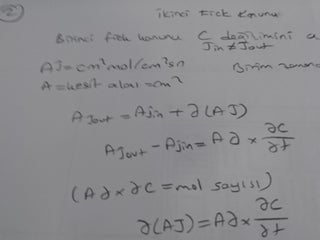 ikinci Fick Kanunu
Birinci fick kanunu C değişimini a
Jin ≠ Jout
AJ = cm² mol/cm² sn Birim zaman
A = kesit alanı = cm²
AJout = AJin + ∂(AJ)
AJout - AJin = A∂ × ∂C/∂t
(A∂ × ∂C = mol sayısı)
∂(AJ) = A∂ × ∂C/∂t